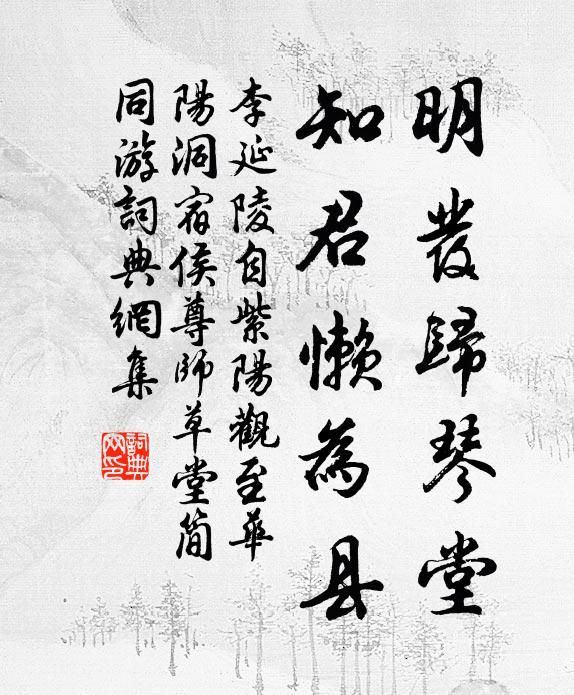 明發歸琴堂
知君懒為县
李延陵自紫陽觀至華
陽洞宿侯尊師草堂简
同游詞典網集
詞典
网印